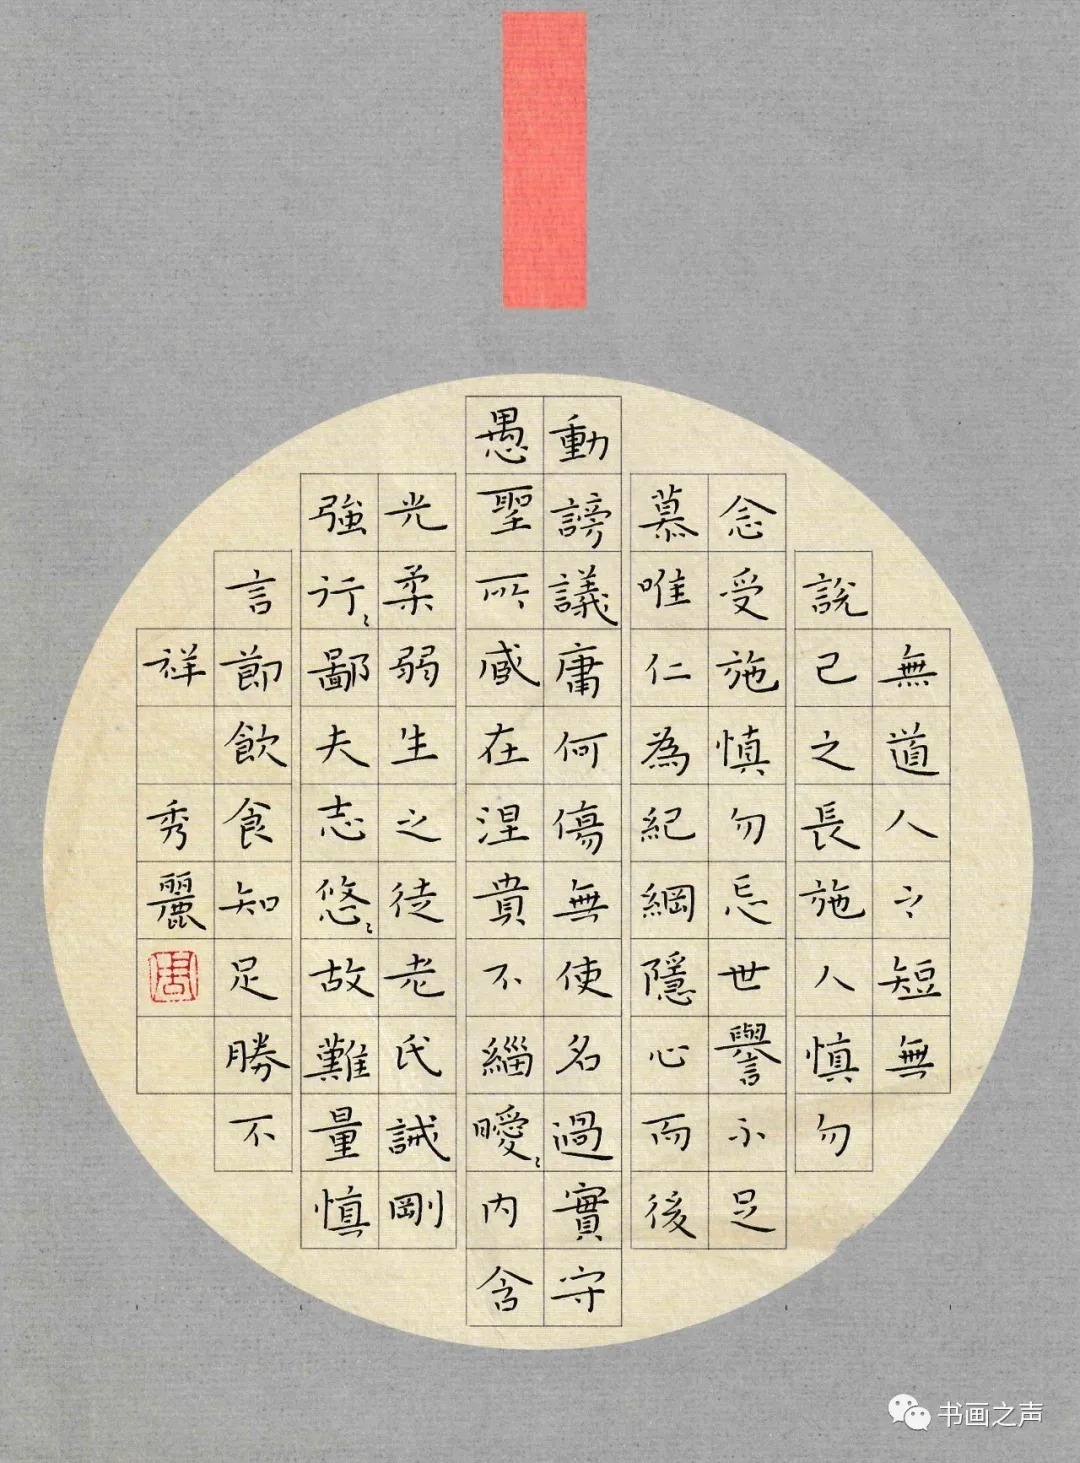 無道人之短無
說己之長施人慎勿
念受施慎勿忘世譽不足
慕唯仁為紀綱隱心而後
動謗議庸何傷無使名過實守
愚聖所臧在涅貴不緇曖〻內含
光柔弱生之徒老氏誡剛
強行〻鄙夫志悠〻故難量慎
言節飲食知足勝不
祥 秀麗
周
书画之声